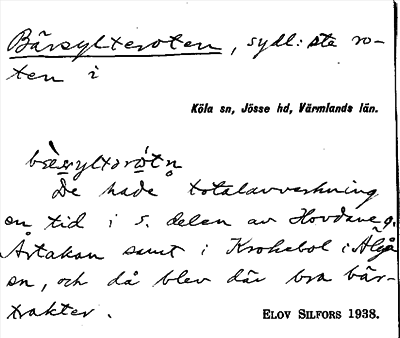 Bärsylteroten, sydl:ste ro-
ten i
Köla sn, Jösse hd, Värmlands län.
De hade totalavverkning
en tid i s. delen av Hovdane g.
Årtakan samt i Krokebol i Älgå
sn, och då blev där bra bär-
trakter.
ELOV SILFORS 1938.